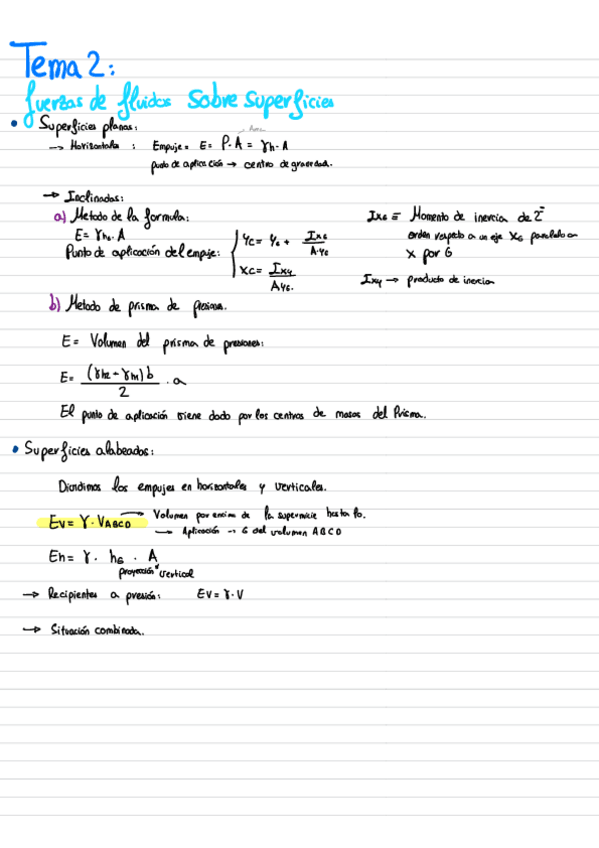 Tema 2:
fuerzas de fluidos sobre superficies
• Superficies planas:
→ Horizontales : Empuje = E = P·A = γh·A
punto de aplicación → centro de gravedad.
→ Inclinadas:
a) Metodo de la formula:
E = γh₆·A
Punto de aplicación del empuje: { Yc = Y₆ + Ix₆/A·Y₆
Xc = Ixy/AY₆.
Ix₆ ≡ Momento de inercia de 2º
orden respecto a un eje X₆ paralelo a
x por G
Ixy → producto de inercia
b) Metodo de prisma de presiones.
E = Volumen del prisma de presiones:
E = (γh₂ + γh₁)b/2 · a
El punto de aplicación viene dado por los centros de masas del Prisma.
• Superficies alabeados:
Dividimos los empujes en horizontales y verticales.
Ev = γ·VABCD → Volumen por encima de la superficie hasta lo.
→ Aplicación → G del volumen ABCD
Eh = γ · h₆ · A
proyección vertical
→ Recipientes a presión: Ev = γ·V
→ Situación combinada.